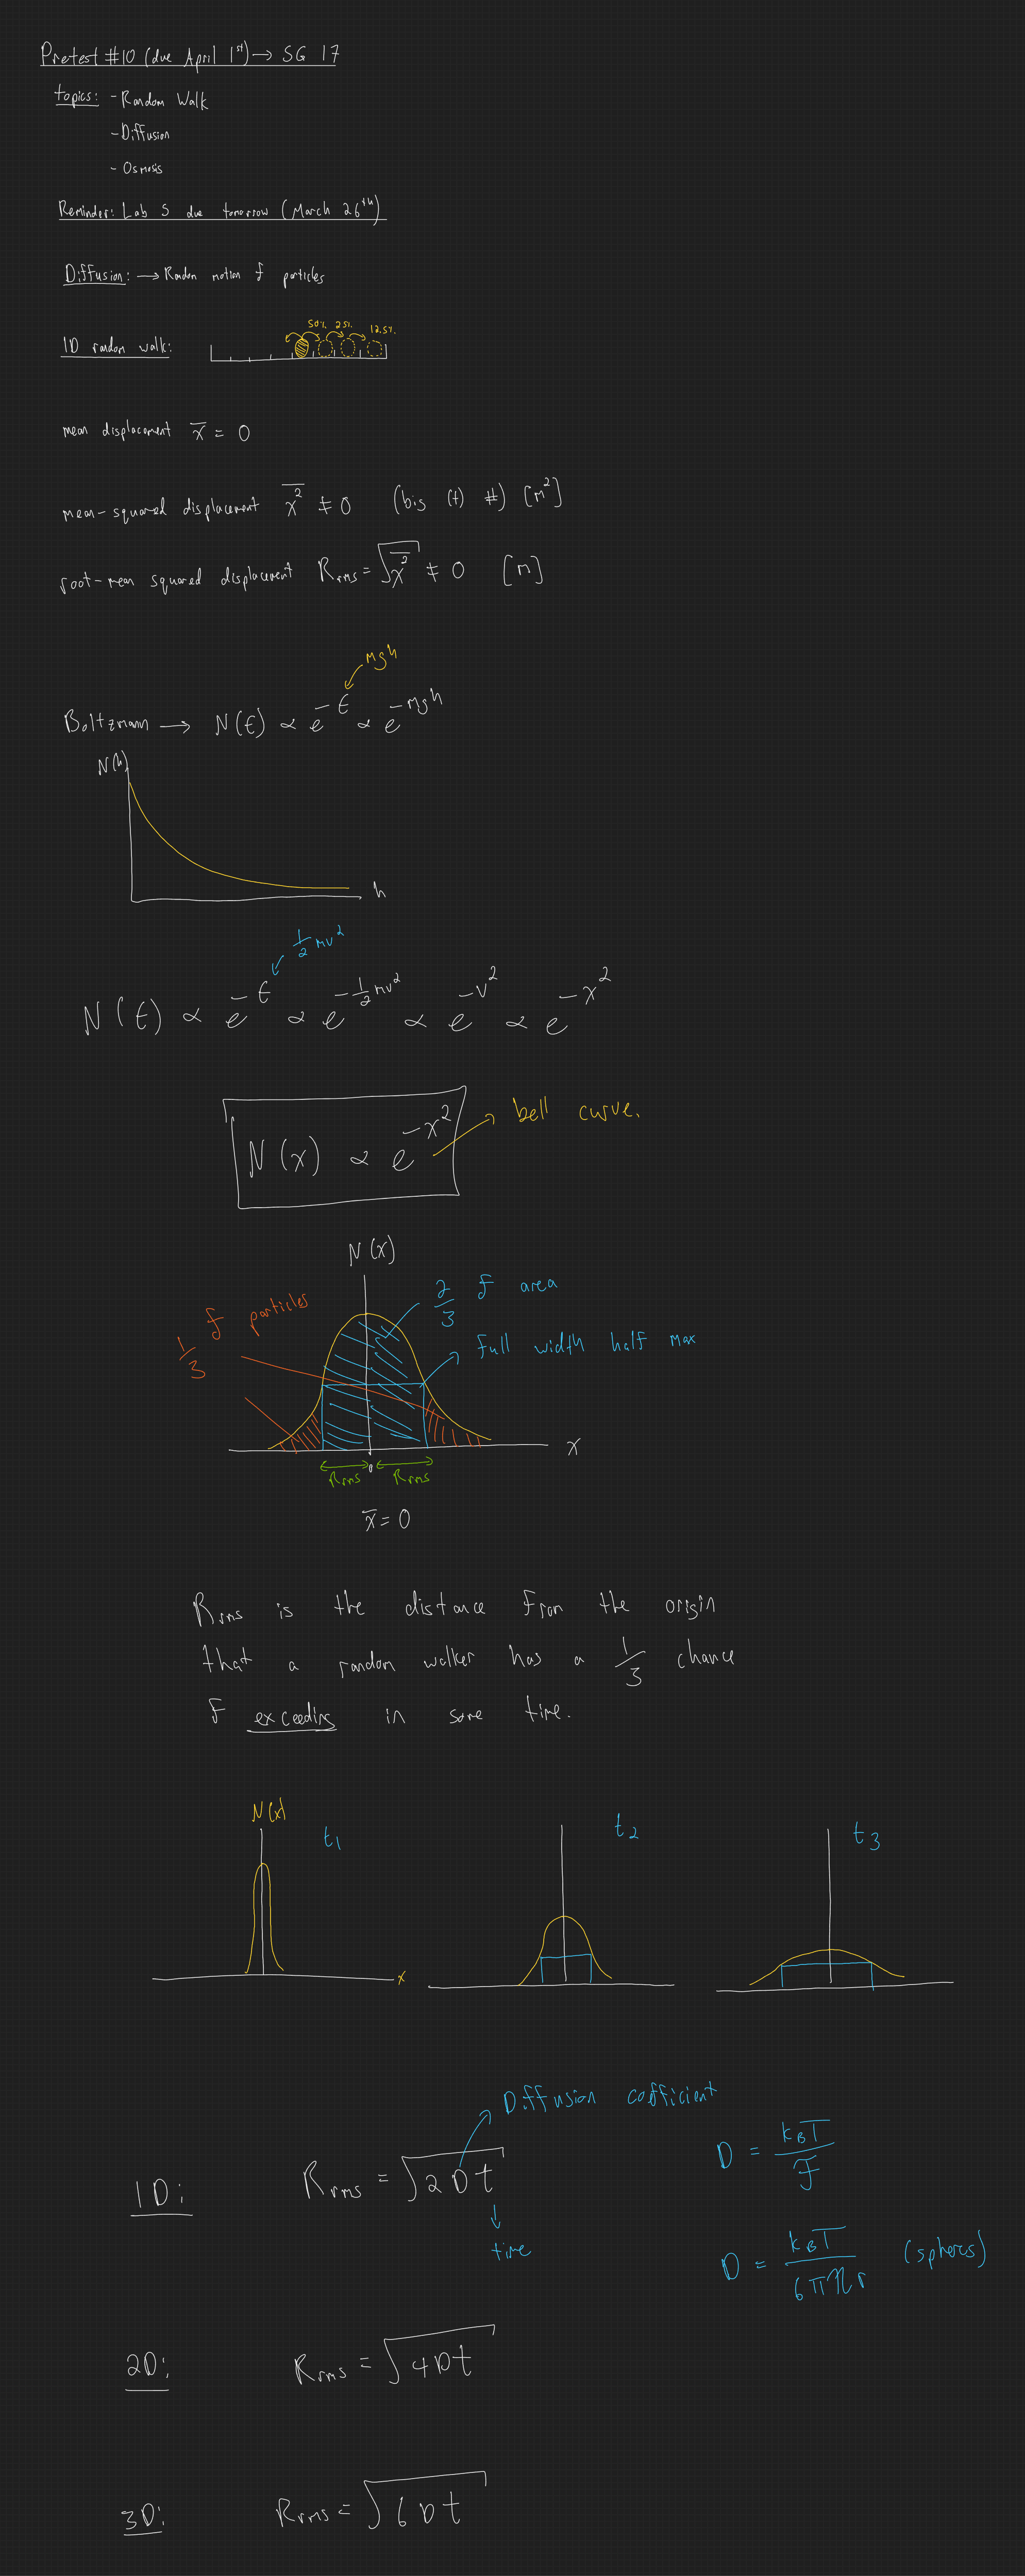 Pretest #10 (due April 1st) → SG 17
topics: - Random Walk
- Diffusion
- Osmosis
Reminder: Lab 5 due tomorrow (March 26th)
Diffusion: → Random motion of particles
50% 25% 12.5%
1D random walk:
mean displacement x̄ = 0
mean-squared displacement x̄² ≠ 0 (big (+) #) [m²]
root-mean squared displacement Rrms = √x̄² ≠ 0 [m]
mgh
Boltzmann → N(E) ∝ e^-E ∝ e^-mgh
N(h)
h
½mv²
N(E) ∝ e^-E ∝ e^-½mv² ∝ e^-v² ∝ e^-x²
N(x) ∝ e^-x² → bell curve.
N(x)
1/3 of particles
2/3 of area
full width half max
x
Rrms 0 Rrms
x̄ = 0
Rrms is the distance from the origin
that a random walker has a 1/3 chance
of exceeding in some time.
N(x) t₁ t₂ t₃
x
Diffusion coefficient
1D: Rrms = √2Dt
time
D = kBT/f
D = kBT/6πηr (spheres)
2D: Rrms = √4Dt
3D: Rrms = √6Dt